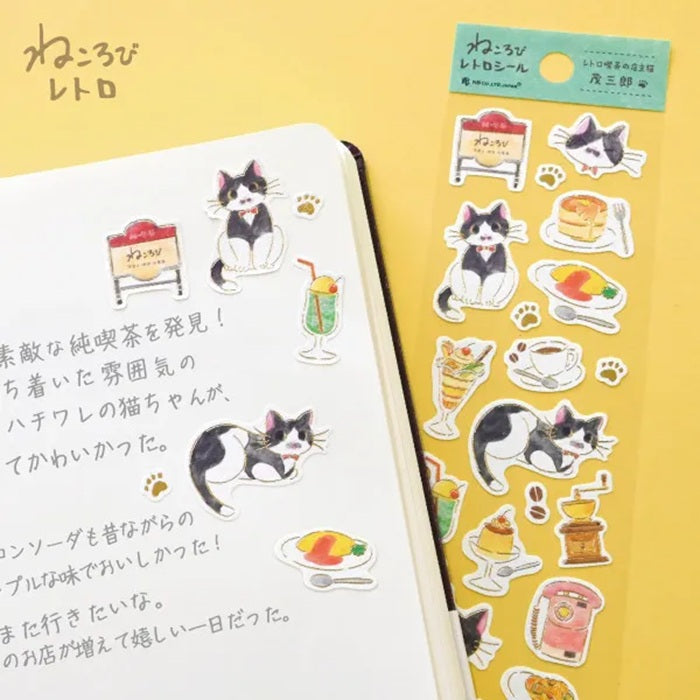 ねころび
レトロ
ねころび
レトロシール
レトロ喫茶の店主猫
茂三郎
純喫茶
ねころび
純喫茶
ねころび
素敵な純喫茶を発見！
ち着いた雰囲気の
ハチワレの猫ちゃんが、
てかわいかった。
ロンソーダも昔ながらの
プルな味でおいしかった！
また行きたいな。
のお店が増えて嬉しい一日だった。